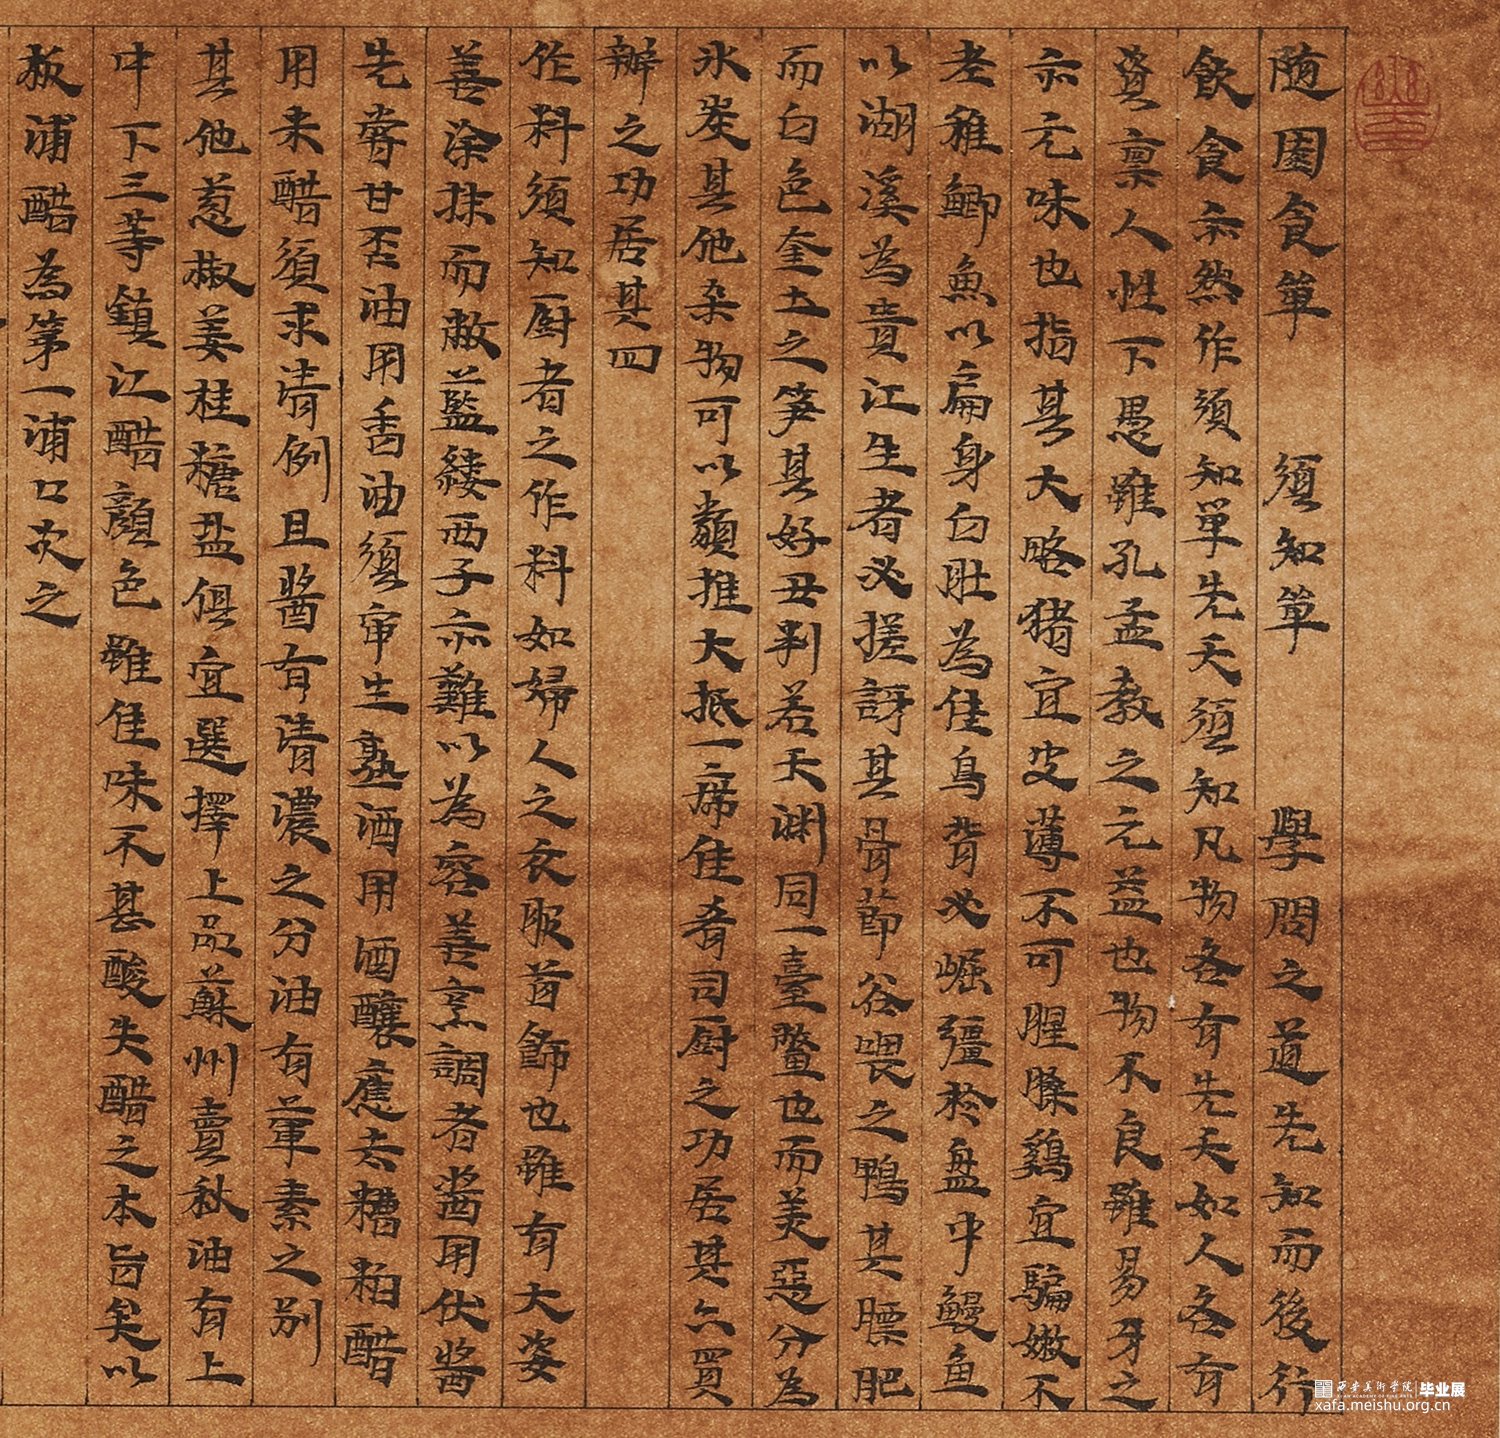 随園食單 須知單 學問之道先知而後行
飲食亦然作須知單先天須知凡物各有先天如人各有
資禀人性下愚雖孔孟教之无益也物不良雖易牙之
亦无味也指其大略猪宜皮薄不可腥臊鷄宜騸嫩不
老稚鲫魚以扁身白肚為佳烏背必崛彊於盘中鰻鱼
以湖溪為貴江生者必搓訝其骨節谷喂之鴨其膘肥
而白色奎土之笋其好丑判若天渊同一臺鱉也而美惡分為
氷炭其他杂物可以類推大抵一席佳肴司厨之功居其六買
辦之功居其四
作料須知厨者之作料如婦人之衣服首飾也雖有大姿
善涂抹而敝藍縷西子亦難以為容善烹調者酱用伏醬
先嘗甘否油用香油須审生熟酒用酒釀應去糟粕醋
用米醋須求清例且醬有清濃之分油有葷素之别
其他葱椒姜桂糖盐俱宜選擇上品蘇州賣秋油有上
中下三等鎮江醋顏色雖佳味不甚酸失醋之本旨矣以
板浦醋為第一浦口次之
西安美术学院 毕业展
xafa.meishu.org.cn